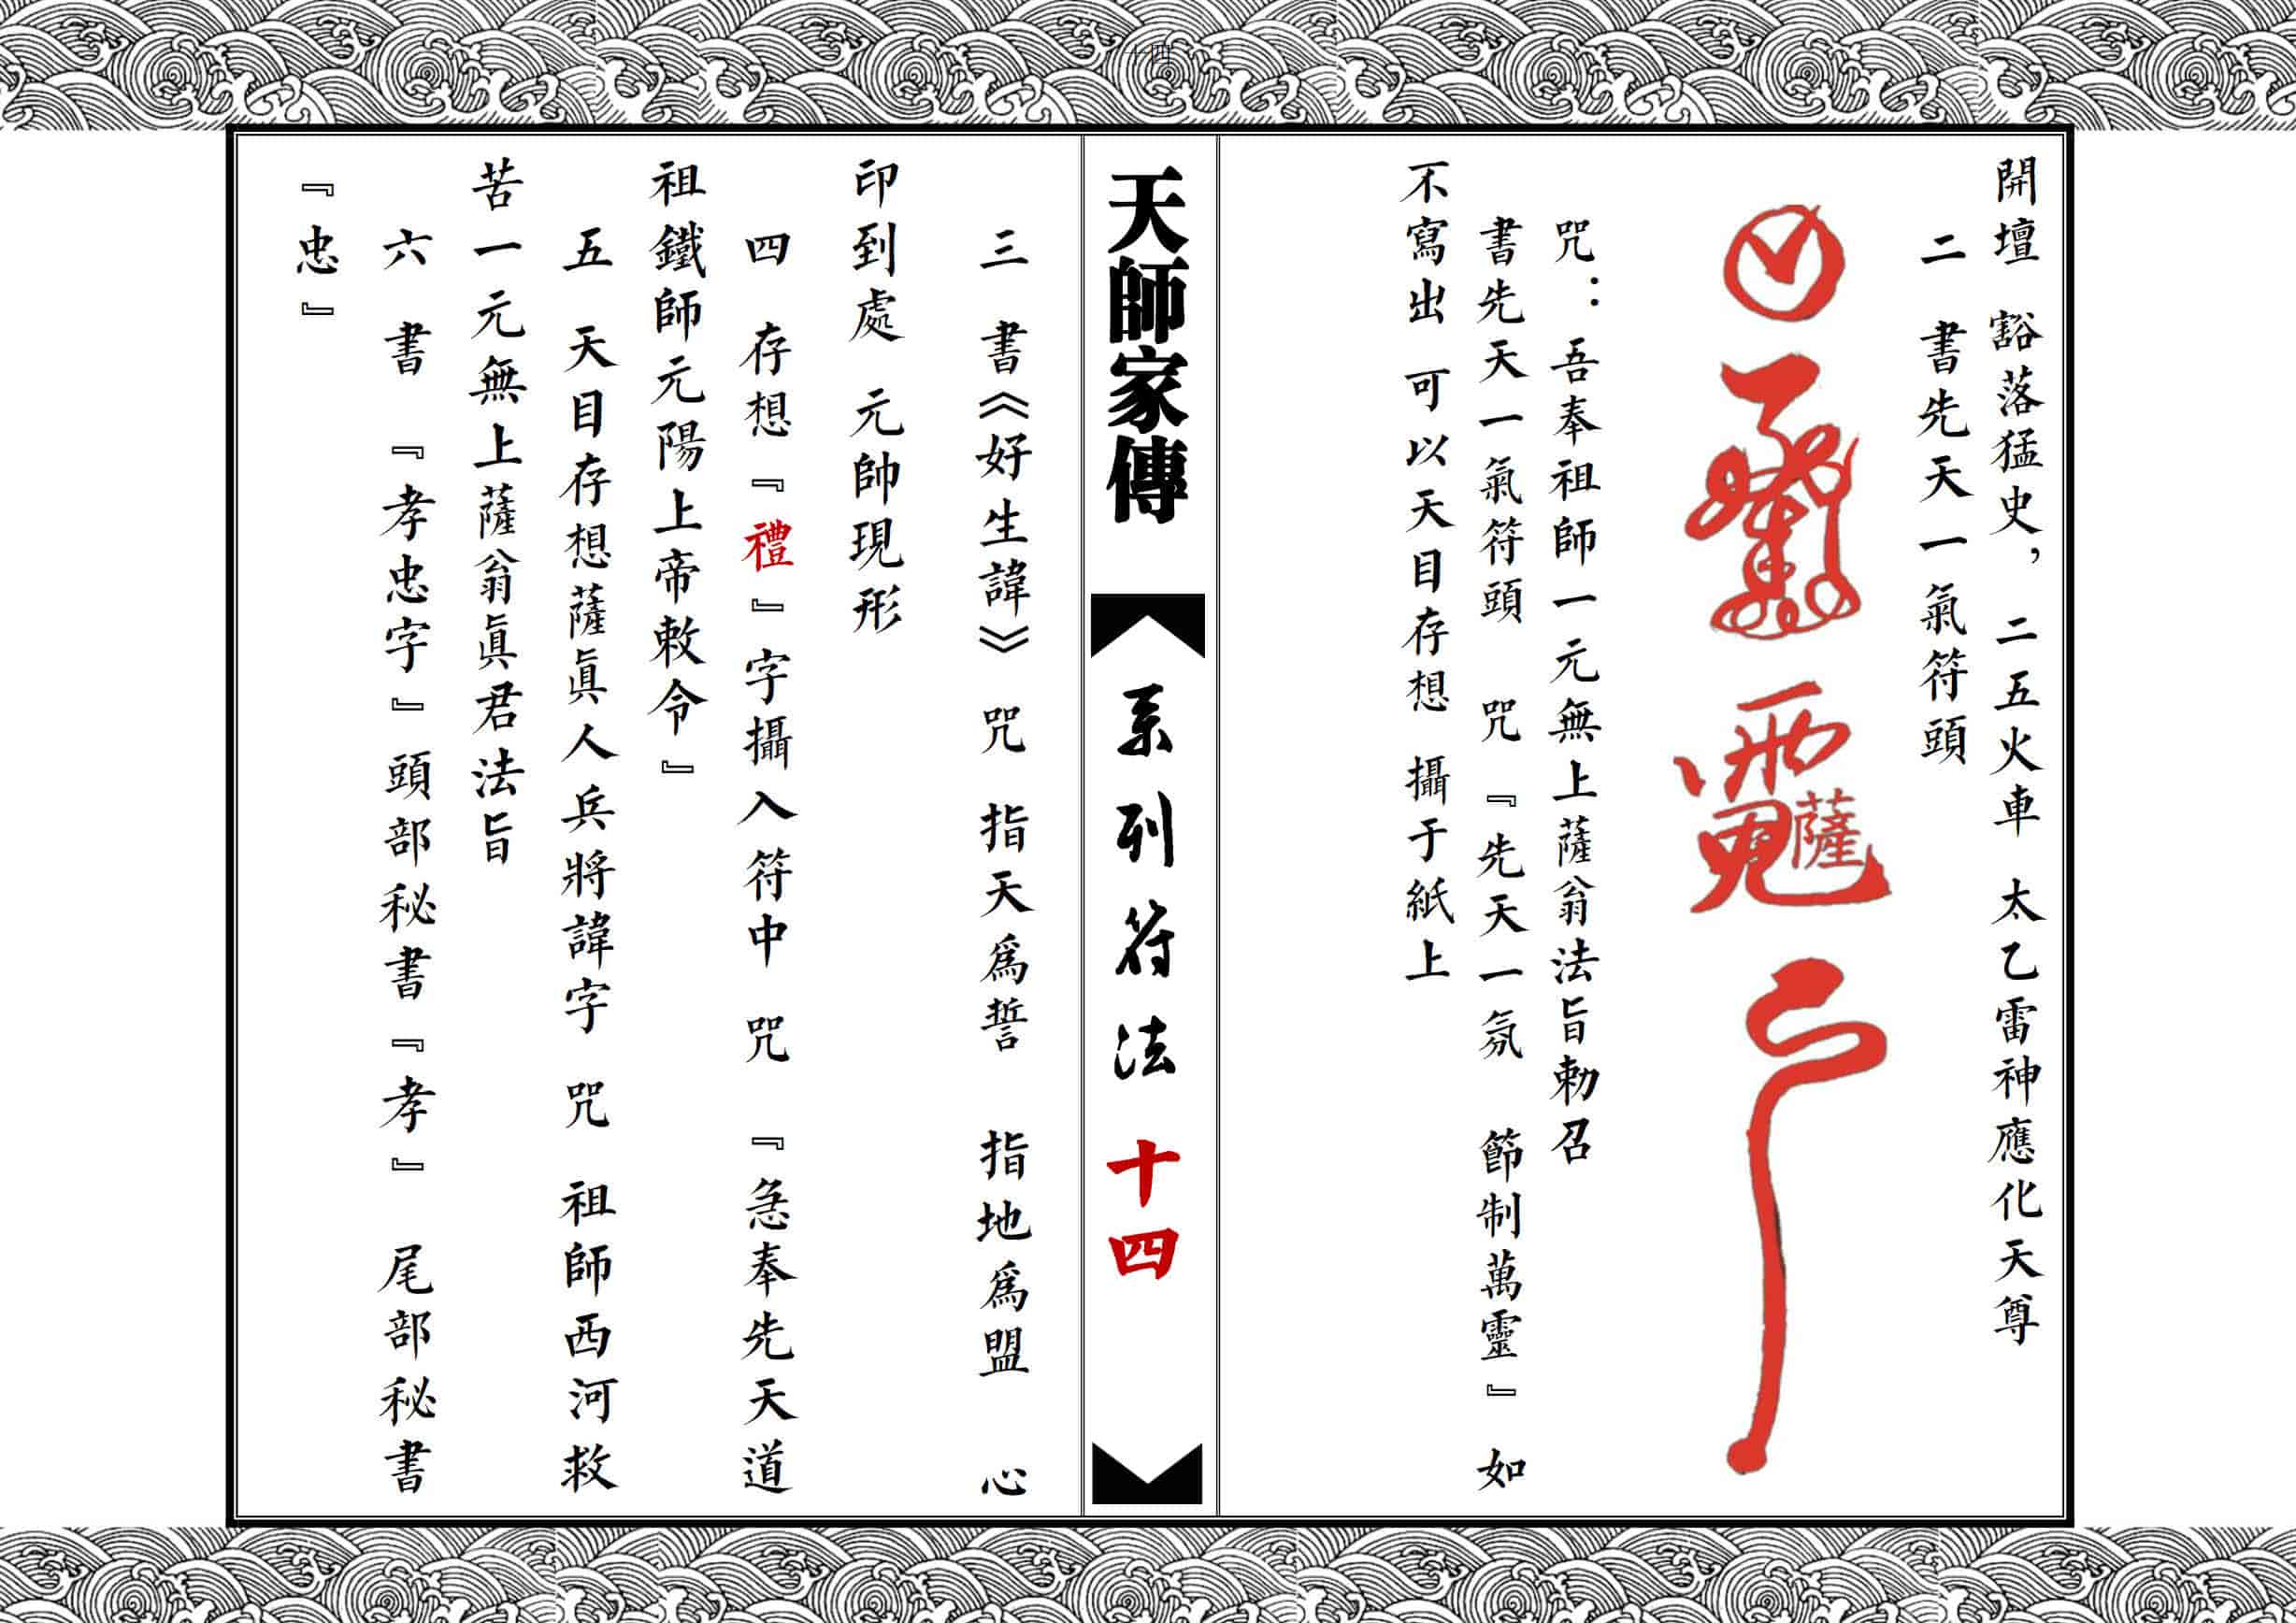 十四
開壇 豁落猛史，二五火車 太乙雷神應化天尊
二 書先天一氣符頭
薩
咒：吾奉祖師一元無上薩翁法旨勅召
書先天一氣符頭 咒『先天一氛 節制萬靈』如
不寫出 可以天目存想 攝于紙上
天師家傳
系列符法 十四
三 書《好生諱》 咒 指天為誓 指地為盟 心
印到處 元帥現形
四 存想『禮』字攝入符中 咒 『急奉先天道
祖鐵師元陽上帝敕令』
五 天目存想薩眞人兵將諱字 咒 祖師西河救
苦一元無上薩翁眞君法旨
六 書 『孝忠字』頭部秘書『孝』 尾部秘書
『忠』